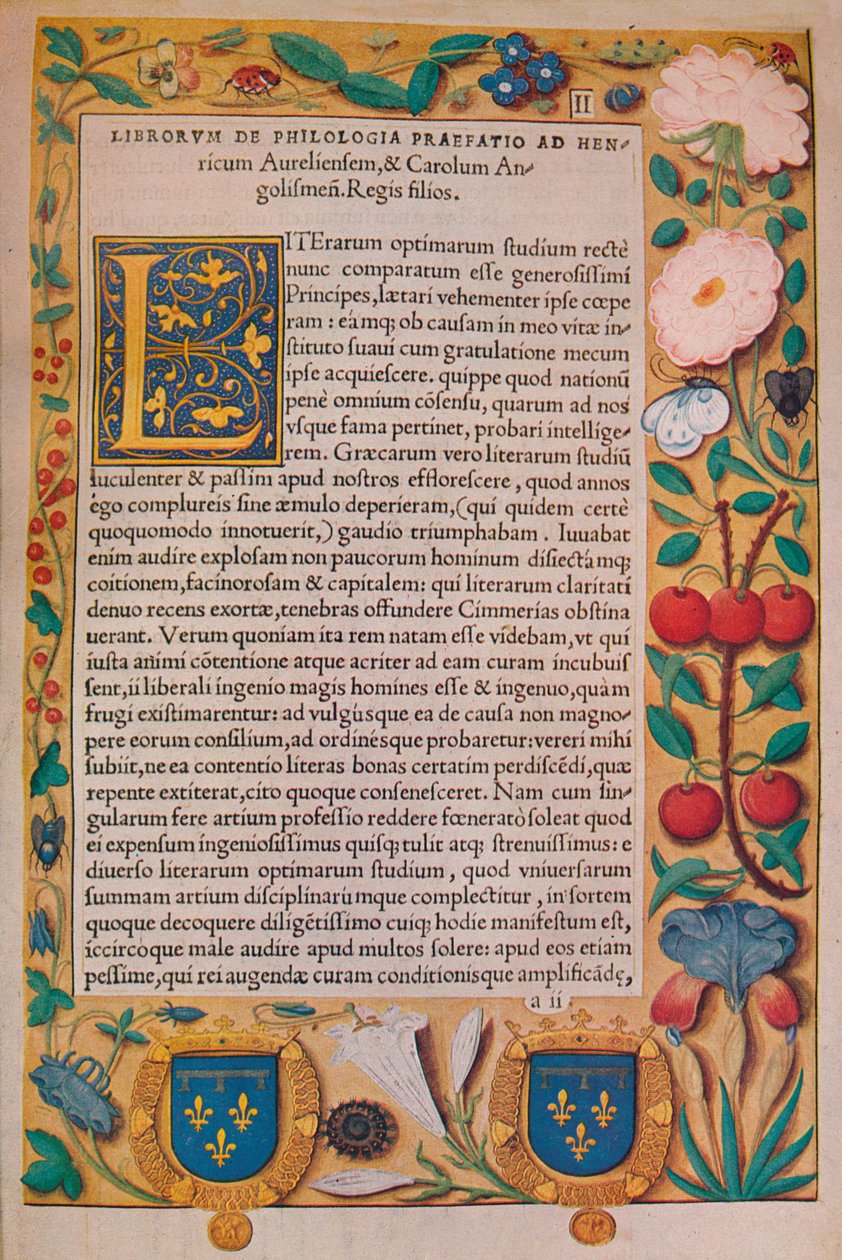 II
LIBRORVM DE PHILOLOGIA PRAEFATIO AD HEN-
ricum Aurelienſem, & Carolum An-
goliſmeñ. Regis filios.
LITErarum optimarum ſtudium rectè
nunc comparatum eſſe generoſiſſimi
Principes, lætari vehementer ipſe cœpe
ram : eámq; ob cauſam in meo vitæ in-
ſtituto ſuaui cum gratulatione mecum
ipſe acquieſcere. quippe quod nationũ
penè omnium cõſenſu, quarum ad nos
vſque fama pertinet, probari intellige-
rem. Græcarum vero literarum ſtudiũ
luculenter & paſſim apud noſtros effloreſcere, quod annos
ego complureis ſine æmulo deperieram, (qui quidem certè
quoquomodo innotuerit,) gaudio triumphabam. Iuuabat
enim audire exploſam non paucorum hominum diſiectámq;
coitionem, facinoroſam & capitalem: qui literarum claritati
denuo recens exortæ, tenebras offundere Cimmerias obſtina
uerant. Verum quoniam ita rem natam eſſe videbam, vt qui
iuſta animi cõtentione atque acriter ad eam curam incubuiſ
ſent, ii liberali ingenio magis homines eſſe & ingenuo, quàm
frugi exiſtimarentur: ad vulgúsque ea de cauſa non magno-
pere eorum conſilium, ad ordinésque probaretur: vereri mihi
ſubiit, ne ea contentio literas bonas certatim perdiſcẽdi, quæ
repente extiterat, cito quoque conſeneſceret. Nam cum ſin-
gularum fere artium profeſſio reddere fœneratò ſoleat quod
ei expenſum ingenioſiſſimus quiſq; tulit atq; ſtrenuiſſimus: e
diuerſo literarum optimarum ſtudium, quod vniuerſarum
ſummam artium diſciplinarúmque complectitur, in ſortem
quoque decoquere diligẽtiſſimo cuiq; hodie manifeſtum eſt,
iccircòque male audire apud multos ſolere: apud eos etiam
peſſime, qui rei augendæ curam conditionisque amplificãdę,
a ii